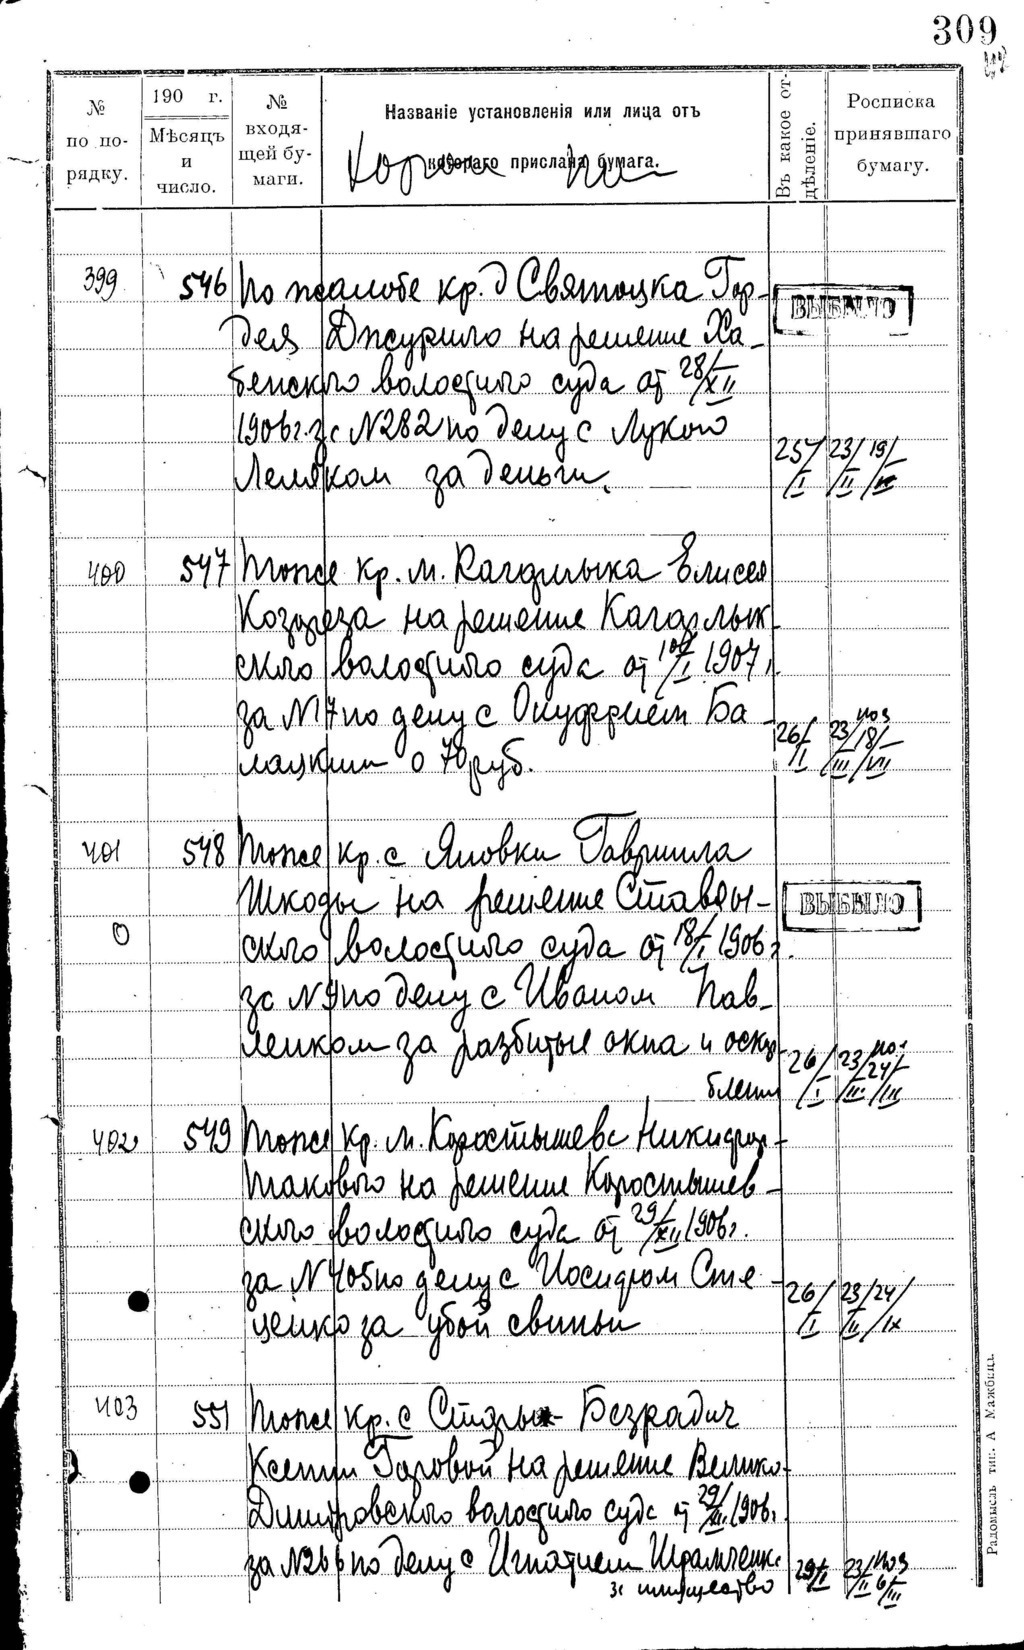 309
№ по порядку.
190 г.
Мѣсяцъ и число.
№ входящей бумаги.
Названіе установленія или лица отъ котораго прислана бумага.
Въ какое отдѣленіе.
Росписка принявшаго бумагу.
399 546 По жалобе кр. д Святоцка Гор-
дея Джурило на решение Ха-
бенского волостного суда от 28/XII
1906 г. за N 282 по делу с Лукою
Лемяком за деньги.
25/I 23/II 19/
ВЫБЫЛО
400 547 Тоже кр. м. Кагарлыка Елисея
Козореза на решение Кагарлык-
ского волостного суда от 10/I 1907 г.
за N 7 по делу с Онуфрием Ба-
лацким о 70 руб.
26/I 23/III 18/VII
401 548 Тоже кр. с Яновки Гавриила
Шкоды на решение Ставы-
ского волостного суда от 18/I 1906 г.
за N 9 по делу с Иваном Пав-
ленком за разбитые окна и оскор
бления
26/I 23/II 24/
ВЫБЫЛО
402 549 Тоже кр. м. Коростышева Никифора
Такового на решение Коростышев-
ского волостного суда от 29/XII 1906 г.
за N 405 по делу с Иосифом Сте-
цейко за убой свиньи
26/I 23/II 24/IX
403 551 Тоже кр. с Стары- Безрадич
Ксении Горовой на решение Велико-
Дмитровского волостного суда от 29/XII 1906 г.
за N 266 по делу с Игнатием Шрамченк
за имущество
29/I 23/II 6/III
Радомысль тип. А Мажбица.